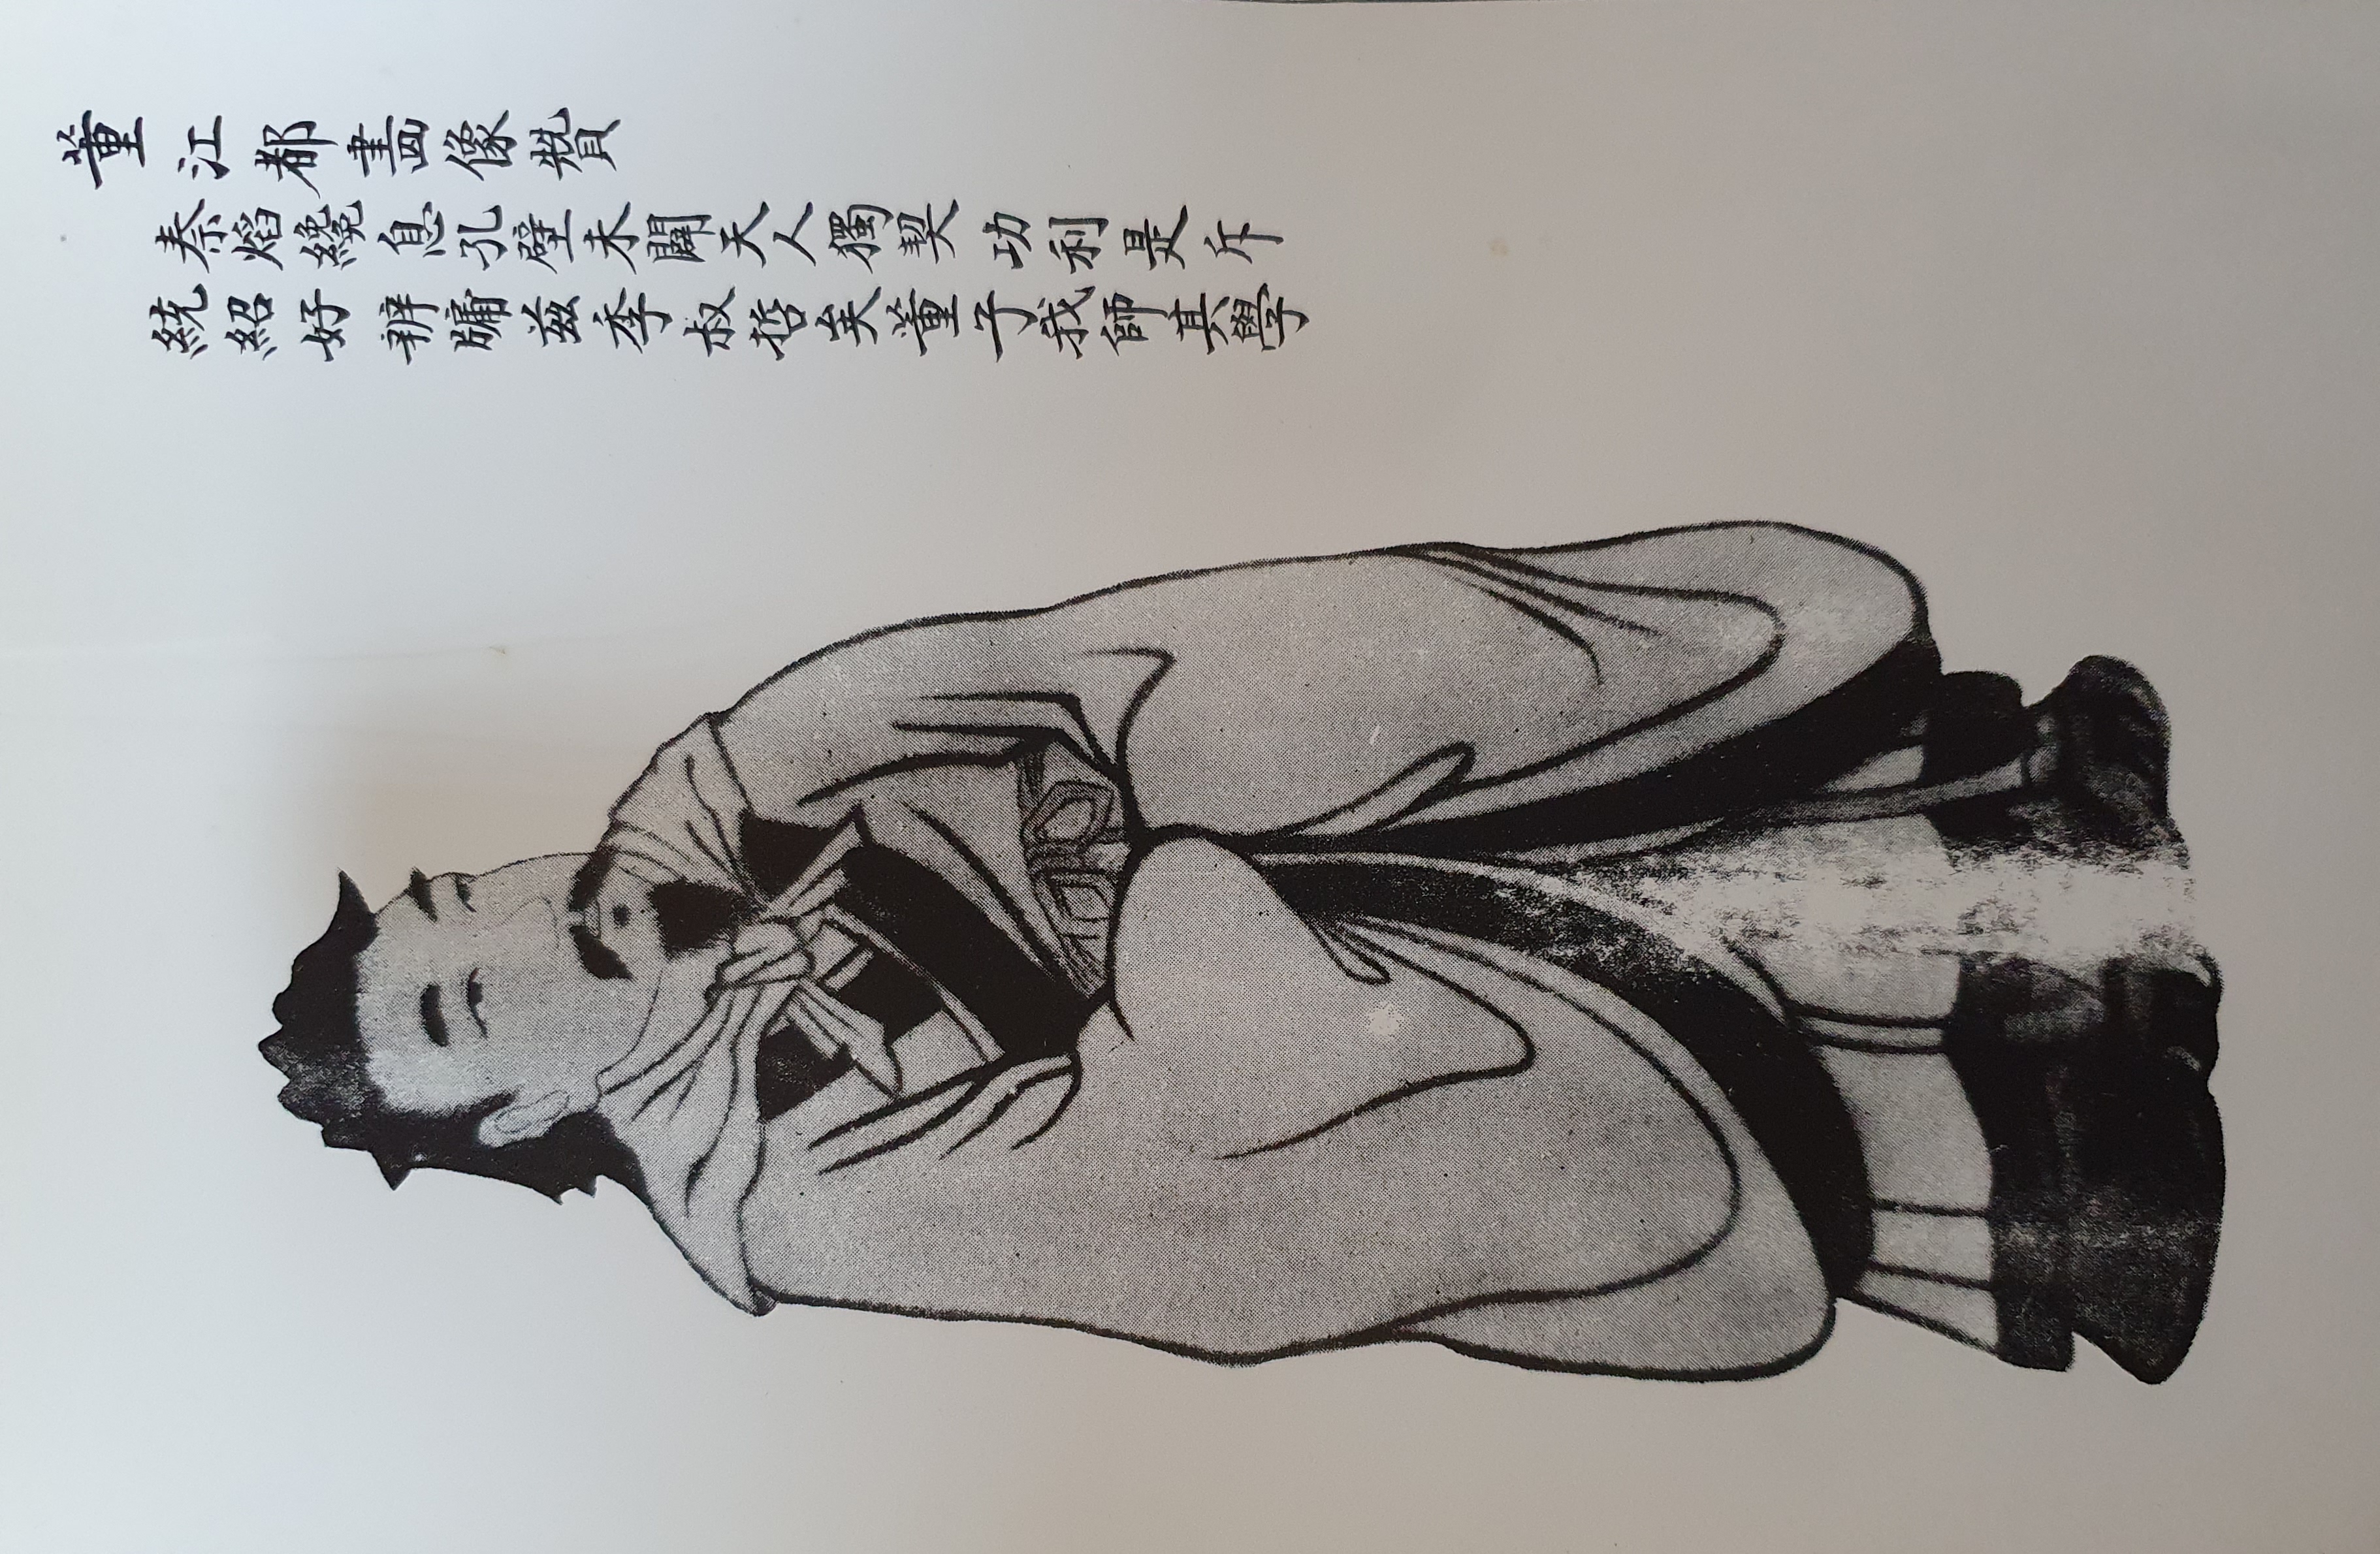 董江都畫像贊
秦焰纔息孔壁未闢天人獨契功利是斥
統紹好辨牖兹季叔哲矣董子我師其學